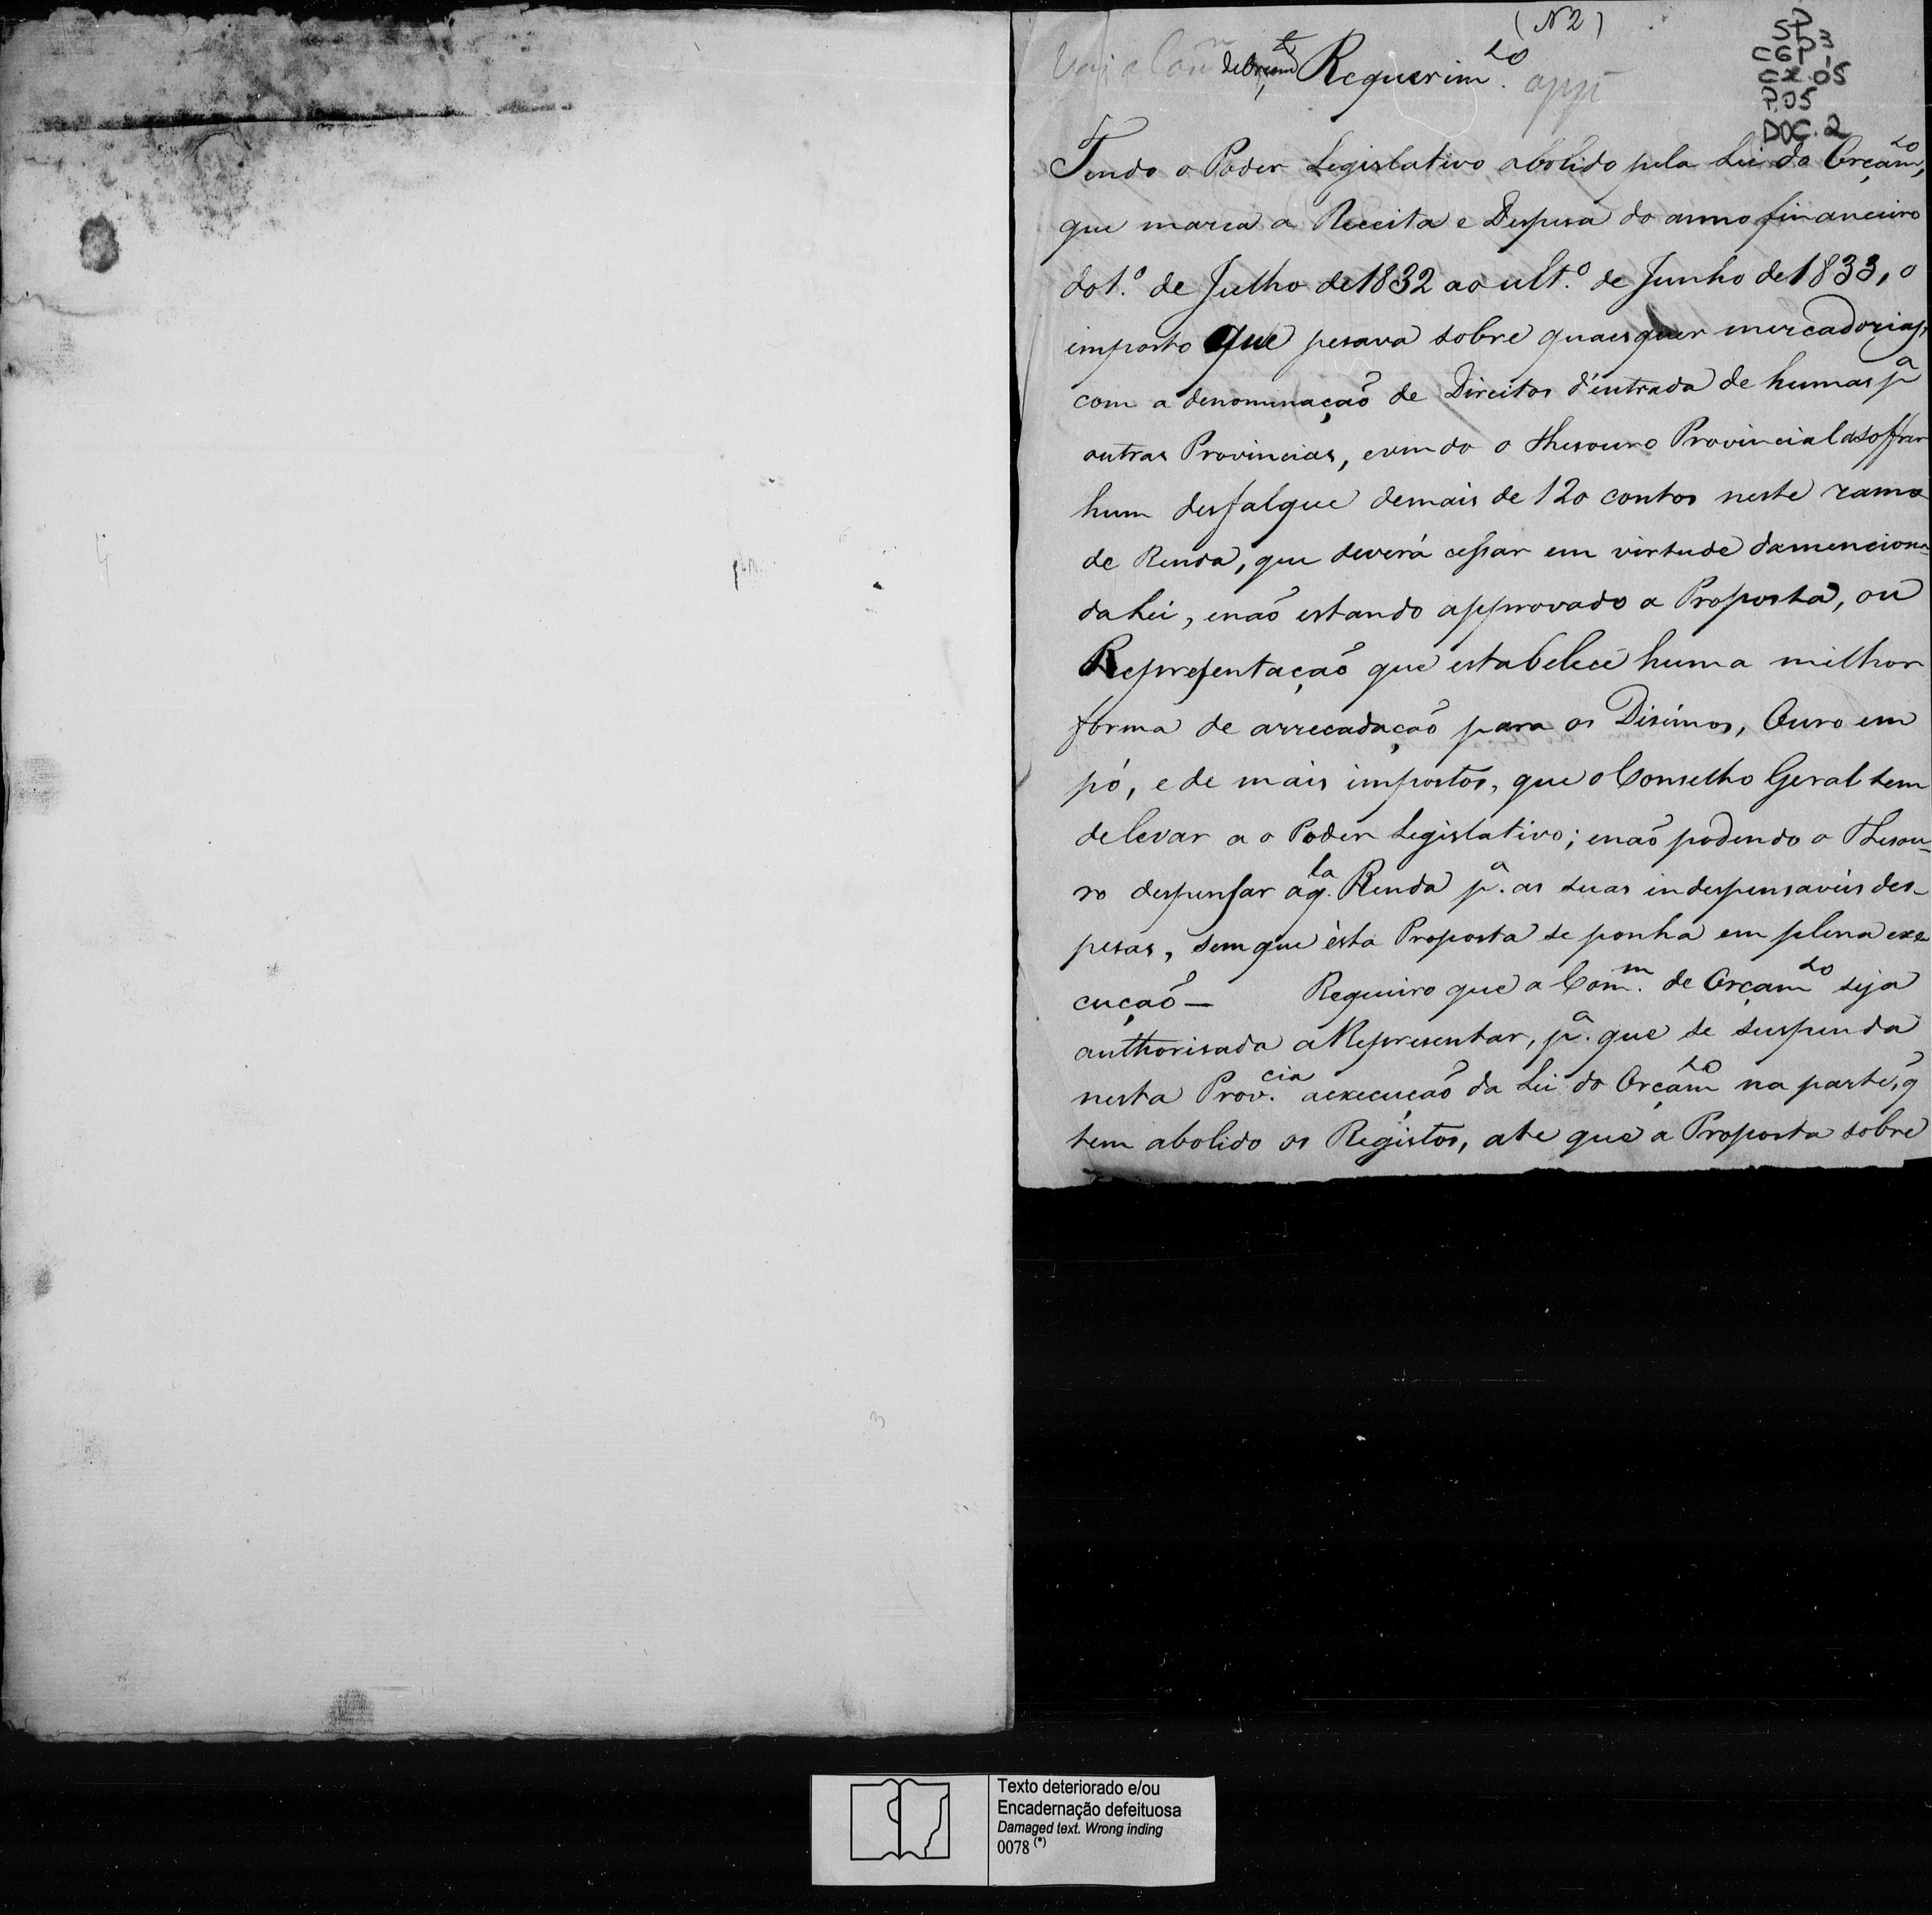 (N 2)
SP
CGP 3
CX.05
P.05
DOC. 2
Vai a Com.m de Orçam.to Requerim.to app
Tendo o Poder Legislativo abolido pela Lei do Orçam.to,
que marca a Receita e Despesa do anno financeiro
do 1.º de Julho de 1832 ao ult.º de Junho de 1833, o
imposto que pesava sobre quaesquer mercadorias,
com a denominação de Direitos d'entrada de humas p.ª
outras Provincias, e vindo o Thesouro Provincial a soffrer
hum desfalque de mais de 120 contos neste ramo
de Renda, que deverá cessar em virtude da menciona-
da Lei, e não estando approvado a Proposta, ou
Representação que estabelece huma milhor
forma de arrecadação para os Disimos, Ouro em
pó, e de mais impostos, que o Conselho Geral tem
de levar a o Poder Legislativo; e não podendo o Thesou-
ro despensar aq.la Renda p.ª as suas indespensaveis des-
pesas, sem que ésta Proposta se ponha em plena exe
cução — Requeiro que a Com.m de Orçam.to seja
authorisada a Representar, p.ª que se suspenda
nesta Prov.cia a execução da Lei do Orçam.to na parte, q
tem abolido os Registos, ate que a Proposta sobre
Texto deteriorado e/ou
Encadernação defeituosa
Damaged text. Wrong inding
0078 (*)